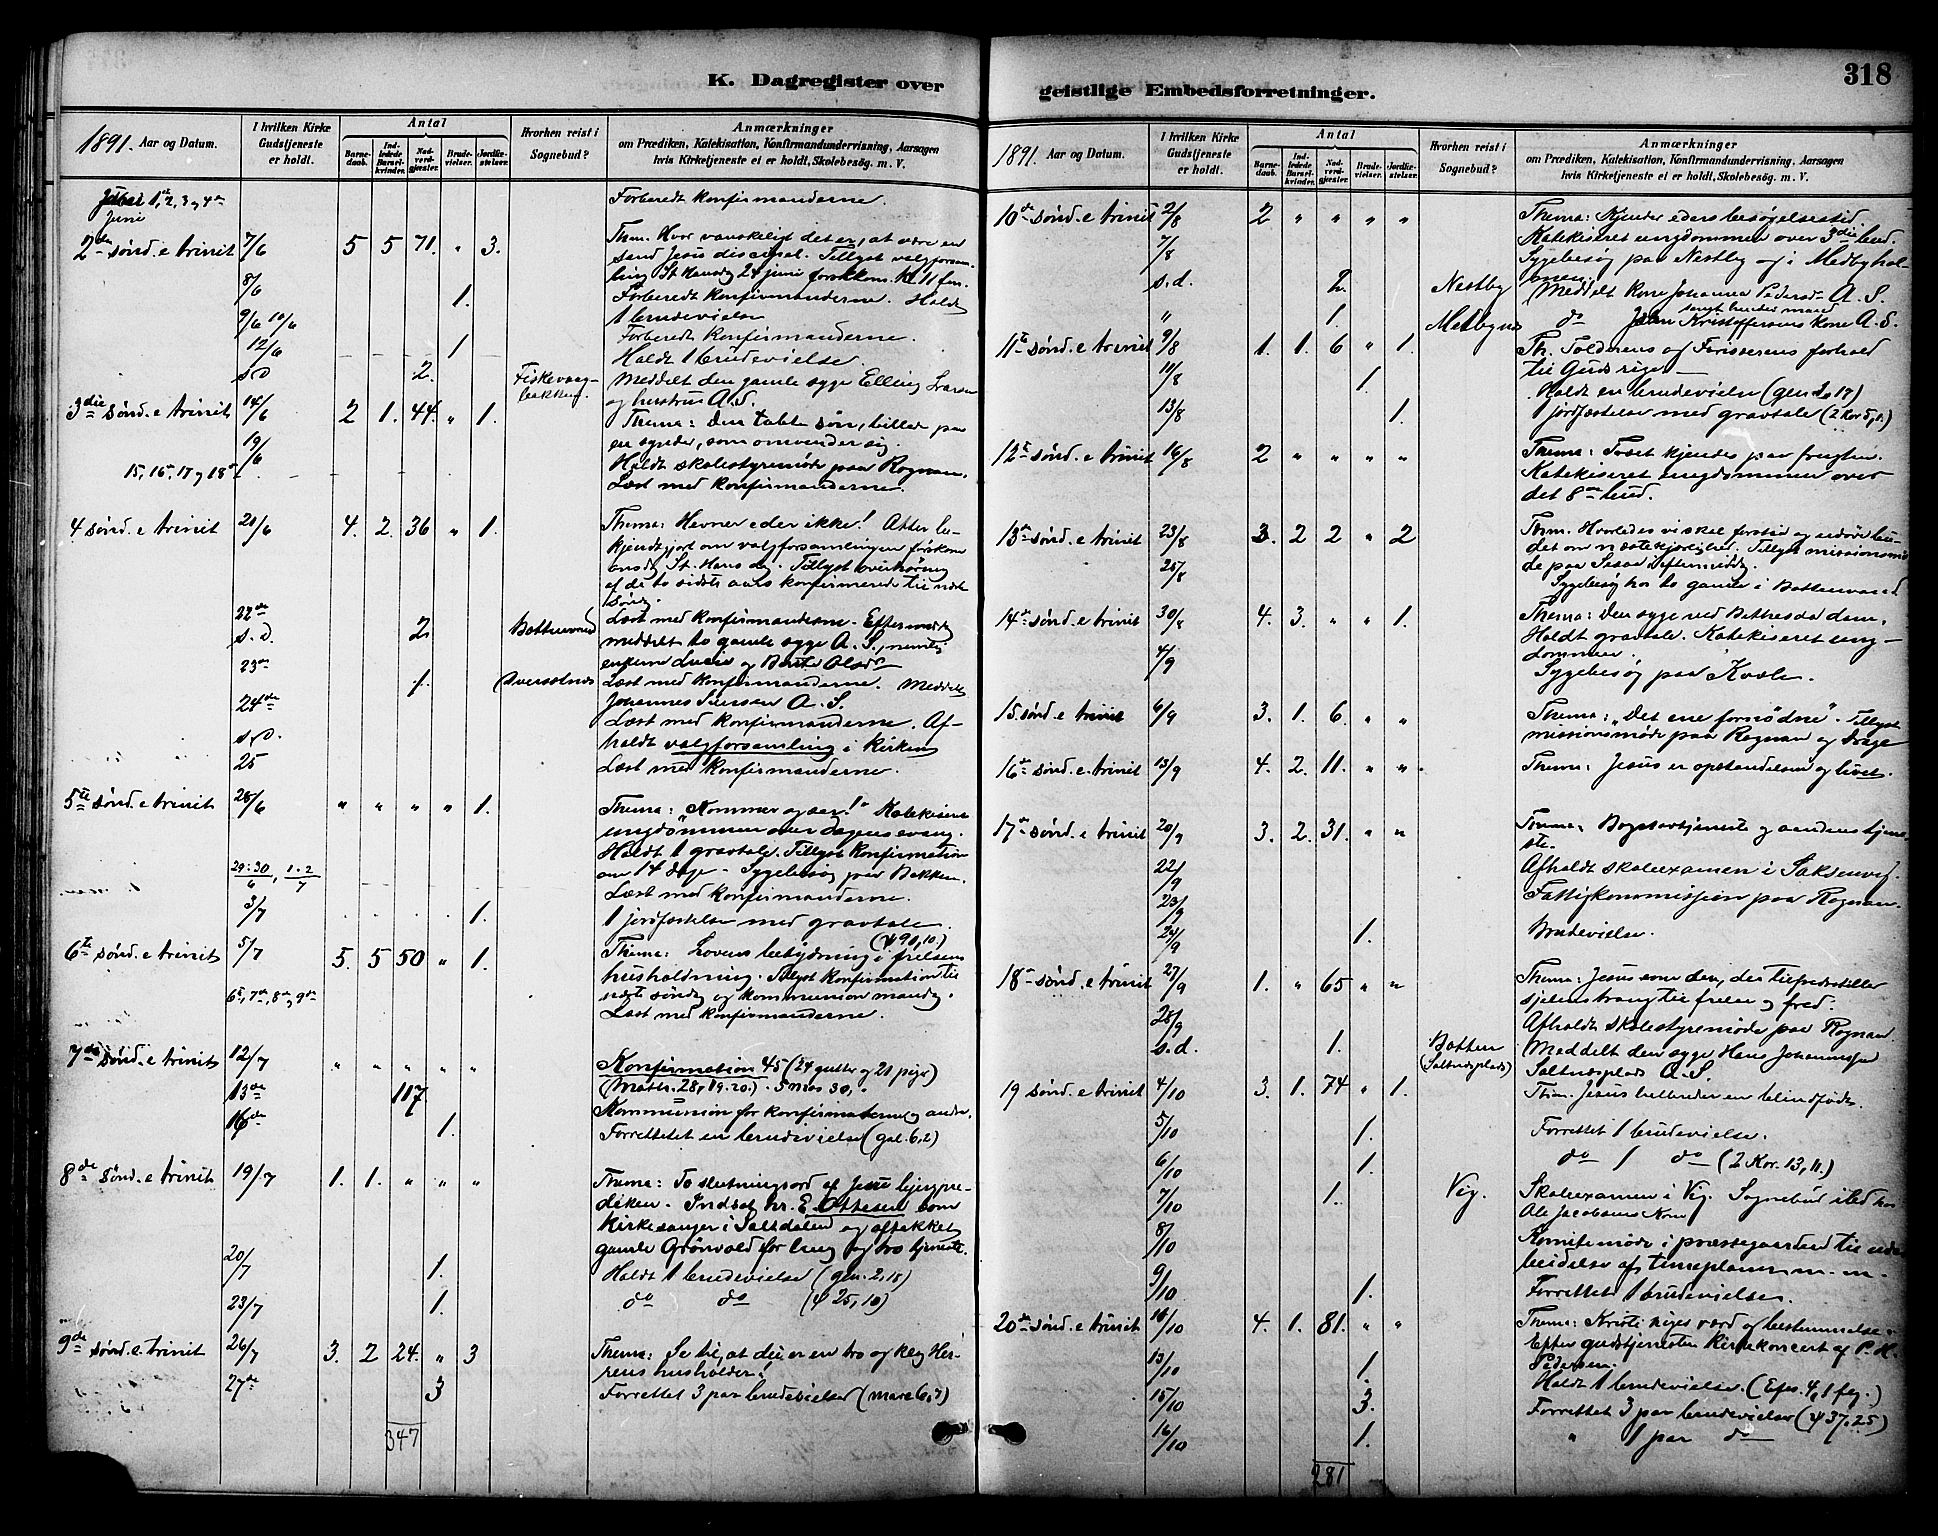 K. Dagregister over
1891. Aar og Datum.
I hvilken Kirke Gudstjeneste er holdt.
Antal
Barnedaab.
Indledede Barselkvinder.
Nadverdgjester.
Brudevielser.
Jordfæstelser.
Hvorhen reist i Sognebud?
Anmærkninger
om Prædiken, Katekisation, Konfirmandundervisning, Aarsagen
hvis Kirketjeneste ei er holdt, Skolebesøg. m. V.
Juni 1, 2, 3 og 4de Forberedt konfirmanderne.
2den sønd. e trinit 7/6 5 5 71. " 3. Thm. Hvor vanskeligt det er, at være en
sand Jesu discipel. Tillyst valgforsam-
ling St Hansdag 24 juni førstkom. Kl 11 fm.
8/6 1. Forberedt konfirmanderne. Holdt
1 brudevielse
9/6 10/6 Forberedt konfirmanderne.
12/6 1 Holdt 1 brudevielse.
s.d 2. Fiskevaag-
bakken. Meddelt den gamle syge Elling Larsen
og hustru A.S.
3die sønd. e trinit 14/6 2 1. 44. " 1. Thema: Den tabte søn, billede paa
en synder, som omvender sig.
19/6 Holdt skolestyremøde paa Rognan.
15, 16de, 17 og 18de Læst med konfirmanderne.
4 sønd. e trinit 21/6 4. 2. 36 " 1. Thema: Hevner eder ikke! Atter be-
kjendtgjort om valgforsamlingen førstkom
onsdag St. Hans dag. Tillyst overhøring
af de to sidste aars konfirmerede til næste
søndag.
22de Læst med konfirmanderne. Eftermiddag
s.d. 2 Bottenvand meddelt to gamle syge A. S., nemlig
enkerne Lucie og Berte Olsd.
23de 1. Læst med konfirmanderne. Meddelt
Johannes A. S.
24de Læst med konfirmanderne. Af-
s.d. holdt valgforsamling i kirken
25 Læst med konfirmanderne.
5te sønd. e trinit 28/6 " " " " 1. Thema: "Kommer og ser!" Katekiseret
ungdommen over dagens evang.
Holdt 1 gravtale. Tillyst konfirmation
om 14 dage. Sygebesøg paa Bakken.
29. 30/6, 1. 2/7 Læst med konfirmanderne.
3/7 1. 1 jordfæstelse med gravtale.
(ψ 90, 10.)
6te sønd. e trinit 5/7 5. 5 50 " 1. Thema: Lovens betydning i frelsens
husholdning. Tillyst konfirmation til
næste søndag og kommunion mandag.
6te, 7de, 8de, 9de Læst med konfirmanderne.
7de sønd. e trinit 12/7 " " " " " Konfirmation 45 (24 gutter og 21 piger)
(Math. 28, 19. 20.) . 5 mos 30, .
13de 117 Kommunion for konfirmaterne og andre.
16de 1. Forrettet en brudevielse (gal. 6, 2)
8de sønd. e trinit 19/7 1. 1. " " " Thema: To slutningsord af Jesu bjergpræ-
diken. Indsat hr. E. Ottesen som
kirkesanger i Saltdalen og aftakket
gamle Grønvold for lang og tro tjeneste.
20/7 1. Holdt 1 brudevielse (gen. 2, 18)
23/7 1. do do (ψ 25, 10)
9de sønd. e. trinit 26/7 3. 2 24. " 3 Thema: Se til, at du er en tro og klog Her-
rens husholder!
27de 3 Forrettet 3 par brudevielser (marc 6, 3)
347
geistlige Embedsforretninger.
318
1891. Aar og Datum.
I hvilken Kirke Gudstjeneste er holdt.
Antal
Barnedaab.
Indledede Barselkvinder.
Nadverdgjester.
Brudevielser.
Jordfæstelser.
Hvorhen reist i Sognebud?
Anmærkninger
om Prædiken, Katekisation, Konfirmandundervisning, Aarsagen
hvis Kirketjeneste ei er holdt, Skolebesøg. m. V.
10de sønd. e trinit 2/8 2 " " " " Thema: Kjender eders besøgelsestid
Katekiseret ungdommen over 3die bud.
7/8 Sygebesøg paa Nestby og i Medbyhol-
men.
s.d. 2. Nestby Meddelt kone Johanna Pedersd. A. S.
" 1. do Kristoffersens kone A. S.
11te sønd. e trinit 9/8 1. 1. 6 " 1. Th. Tolderens og Farisæerens forhold
til Guds rige.
11/8 1. Holdt en brudevielse (gen. 2, 17)
13/8 1. 1 jordfæstelse med gravtale (2 Kor 5, 1.)
12te sønd. e trinit 16/8 2 " " " " Thema: Træet kjendes paa frugten.
Katekiseret ungdommen over
det 8de bud.
13de sønd. e trinit 23/8 3. 2 2 " 2 Thm. Hvorledes vi skal forstaa og udøve bu-
det om næstekjærlighed. Tillyst missionsmø-
de paa eftermiddag
25/8 Sygebesøg hos to gamle i Bottenvand
14de sønd. e trinit 30/8 4. 3. " " 1. Thema: Den syge ved Bethesda dam.
Holdt gravtale. Katekiseret ung-
dommen.
4/9 Sygebesøg paa Kvæle.
15. sønd. e trinit 6/9 3. 1. 6. " " Thema: "Det ene fornødne". Tillyst
missionsmøde paa Rognan og Drage
16de sønd. e. trinit 13/9 4. 2. 11. " " Thema: Jesus er opstandelsen og livet.
17de sønd. e trinit 20/9 3. 2. 31. " " Thema: Bogstavtjeneste og aandens tjene-
ste.
22/9 Afholdt skoleexamen i Saksenvik.
23/9 Fattigkommission paa Rognan.
24/9 1. Brudevielse.
18de sønd. e trinit 27/9 1. " 65 " " Thema: Jesus som den, der tilfredsstiller
sjelens trang til frelse og fred.
28/9 Afholdt skolestyremøde paa Rognan
s.d. 1. Botten
(Saltnesplads) Meddelt den syge Hans Johannesen
Saltnesplads A. S.
19 sønd. e trinit 4/10 3. 1. 74 " 1. Thm. Jesus helbreder en blindfødt.
5/10 1. Forrettet 1 brudevielse.
6/10 1. do 1 do (2 Kor. 13, 11.)
7/10 1. Vig. Skoleexamen i Vig. Sognebud hos
Ole Jacobsens kone
8/10 Komitemøde i præstegaarden til udar-
beidelse af timeplaner m. m.
9/10 1. Forrettet 1 brudevielse.
20de sønd. e trinit 11/10 4. 1. 81. " " Thema: Kristi riges værd og bestemmelse.
Efter gudstjenesten kirkekoncert af P. H.
Pedersen.
13/10 1. Holdt 1 brudevielse. (Efes. 4, 1 flg.)
15/10 3. Forrettet 3 par brudevielser (ψ 37, 25)
16/10 1. " 1 par do
281